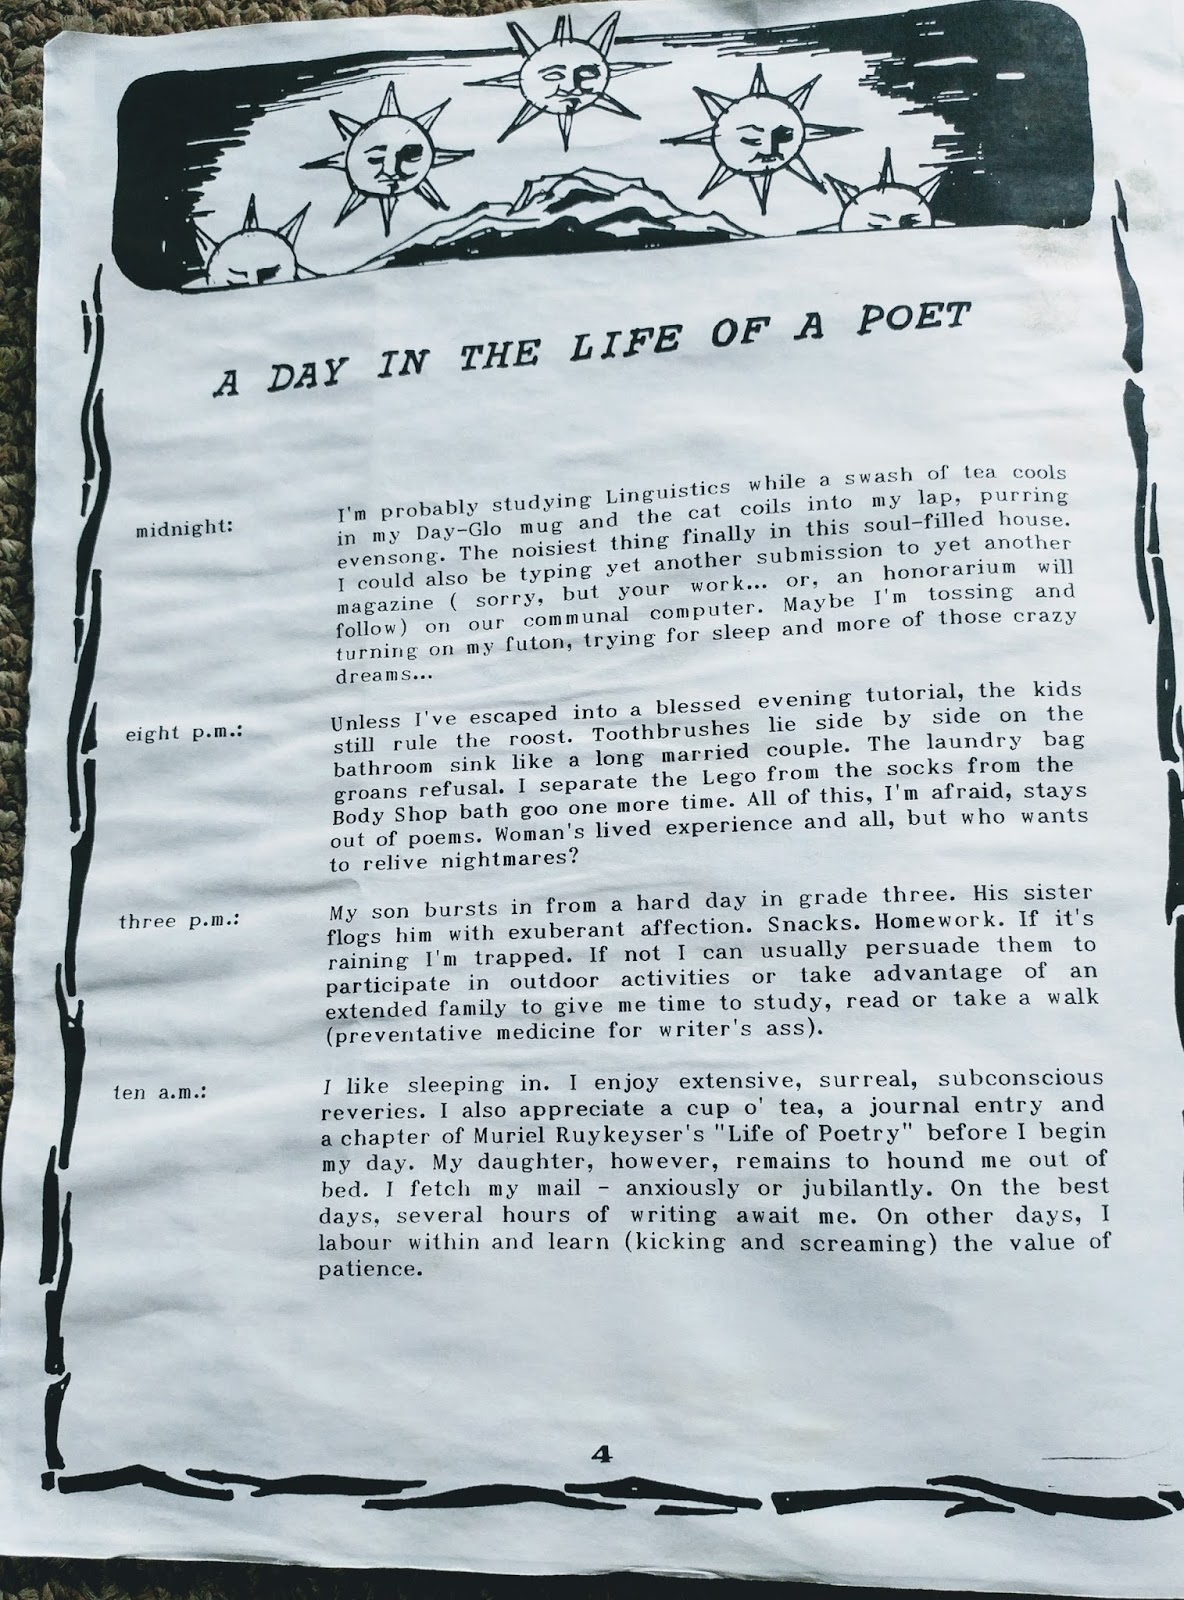 A DAY IN THE LIFE OF A POET
midnight:
I'm probably studying Linguistics while a swash of tea cools
in my Day-Glo mug and the cat coils into my lap, purring
evensong. The noisiest thing finally in this soul-filled house.
I could also be typing yet another submission to yet another
magazine ( sorry, but your work... or, an honorarium will
follow) on our communal computer. Maybe I'm tossing and
turning on my futon, trying for sleep and more of those crazy
dreams...
eight p.m.:
Unless I've escaped into a blessed evening tutorial, the kids
still rule the roost. Toothbrushes lie side by side on the
bathroom sink like a long married couple. The laundry bag
groans refusal. I separate the Lego from the socks from the
Body Shop bath goo one more time. All of this, I'm afraid, stays
out of poems. Woman's lived experience and all, but who wants
to relive nightmares?
three p.m.:
My son bursts in from a hard day in grade three. His sister
flogs him with exuberant affection. Snacks. Homework. If it's
raining I'm trapped. If not I can usually persuade them to
participate in outdoor activities or take advantage of an
extended family to give me time to study, read or take a walk
(preventative medicine for writer's ass).
ten a.m.:
I like sleeping in. I enjoy extensive, surreal, subconscious
reveries. I also appreciate a cup o' tea, a journal entry and
a chapter of Muriel Ruykeyser's "Life of Poetry" before I begin
my day. My daughter, however, remains to hound me out of
bed. I fetch my mail - anxiously or jubilantly. On the best
days, several hours of writing await me. On other days, I
labour within and learn (kicking and screaming) the value of
patience.
4